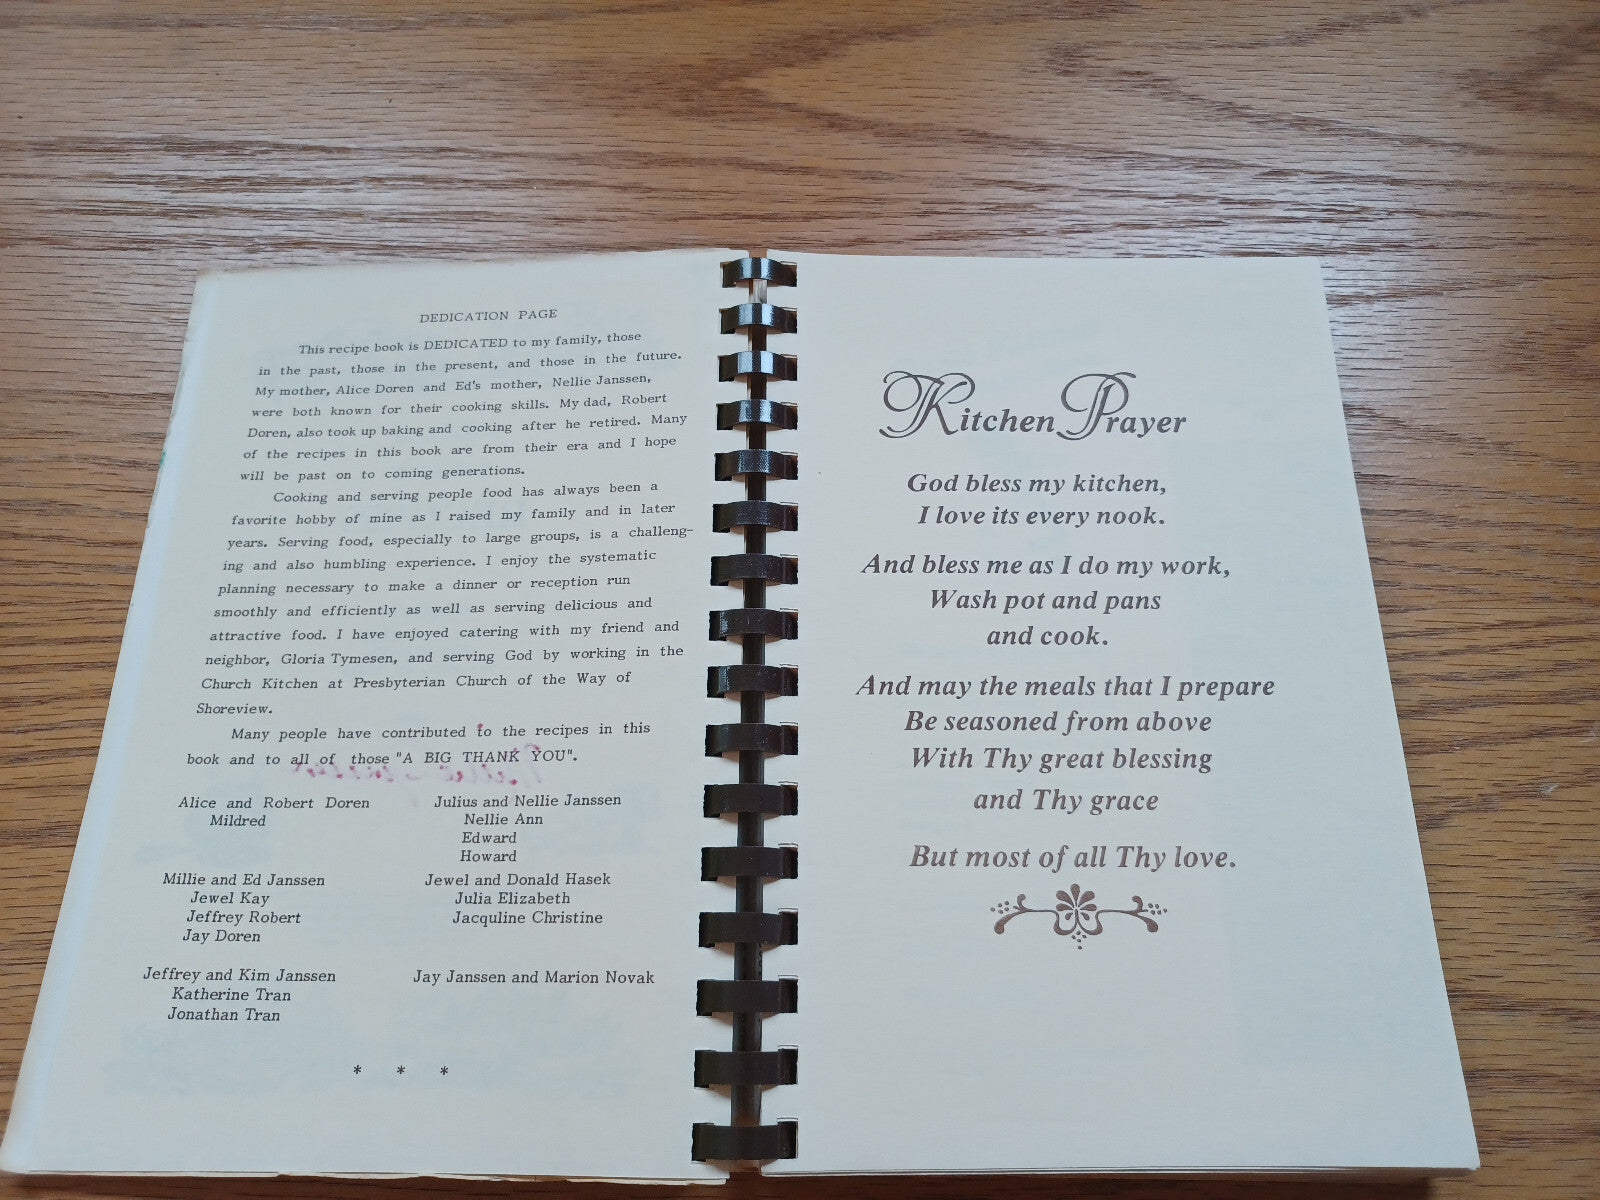 DEDICATION PAGE
This recipe book is DEDICATED to my family, those
in the past, those in the present, and those in the future.
My mother, Alice Doren and Ed's mother, Nellie Janssen,
were both known for their cooking skills. My dad, Robert
Doren, also took up baking and cooking after he retired. Many
of the recipes in this book are from their era and I hope
will be past on to coming generations.
Cooking and serving people food has always been a
favorite hobby of mine as I raised my family and in later
years. Serving food, especially to large groups, is a challeng-
ing and also humbling experience. I enjoy the systematic
planning necessary to make a dinner or reception run
smoothly and efficiently as well as serving delicious and
attractive food. I have enjoyed catering with my friend and
neighbor, Gloria Tymesen, and serving God by working in the
Church Kitchen at Presbyterian Church of the Way of
Shoreview.
Many people have contributed to the recipes in this
book and to all of those "A BIG THANK YOU".
Alice and Robert Doren
Mildred
Julius and Nellie Janssen
Nellie Ann
Edward
Howard
Millie and Ed Janssen
Jewel Kay
Jeffrey Robert
Jay Doren
Jewel and Donald Hasek
Julia Elizabeth
Jacquline Christine
Jeffrey and Kim Janssen
Katherine Tran
Jonathan Tran
Jay Janssen and Marion Novak
* * *
Kitchen Prayer
God bless my kitchen,
I love its every nook.
And bless me as I do my work,
Wash pot and pans
and cook.
And may the meals that I prepare
Be seasoned from above
With Thy great blessing
and Thy grace
But most of all Thy love.